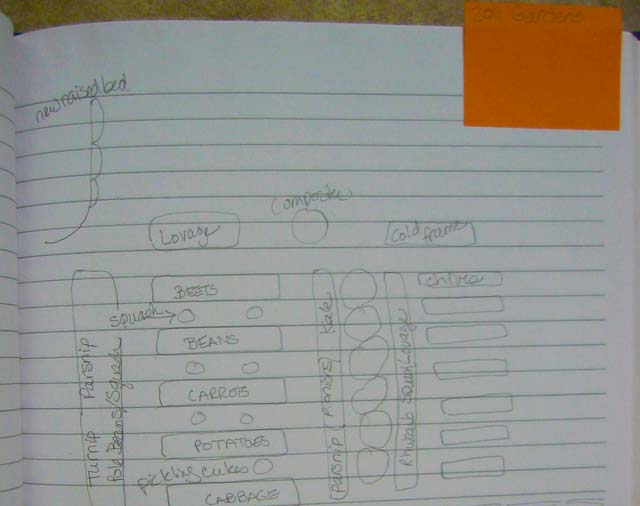 2011 Gardens
new raised bed
Composter
Lovage
Cold frame
BEETS
chives
squash
BEANS
CARROTS
POTATOES
pickling cukes
CABBAGE
Turnip Parsnip
Pole Beans/Squash
Parsnip (onions) Kale
Rhubarb Squash Lovage